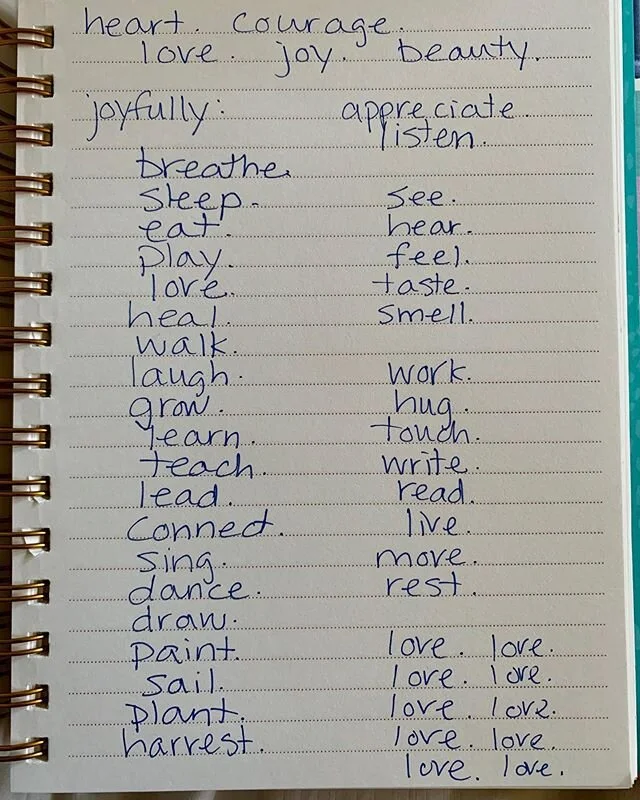 heart. courage.
love. joy. beauty.
joyfully:
breathe.
sleep.
eat.
play.
love.
heal.
walk.
laugh.
grow.
learn.
teach.
lead.
connect.
sing.
dance.
draw.
paint.
sail.
plant.
harvest.
appreciate.
listen.
see.
hear.
feel.
taste.
smell.
work.
hug.
touch.
write.
read.
live.
move.
rest.
love. love.
love. love.
love. love.
love. love.
love. love.